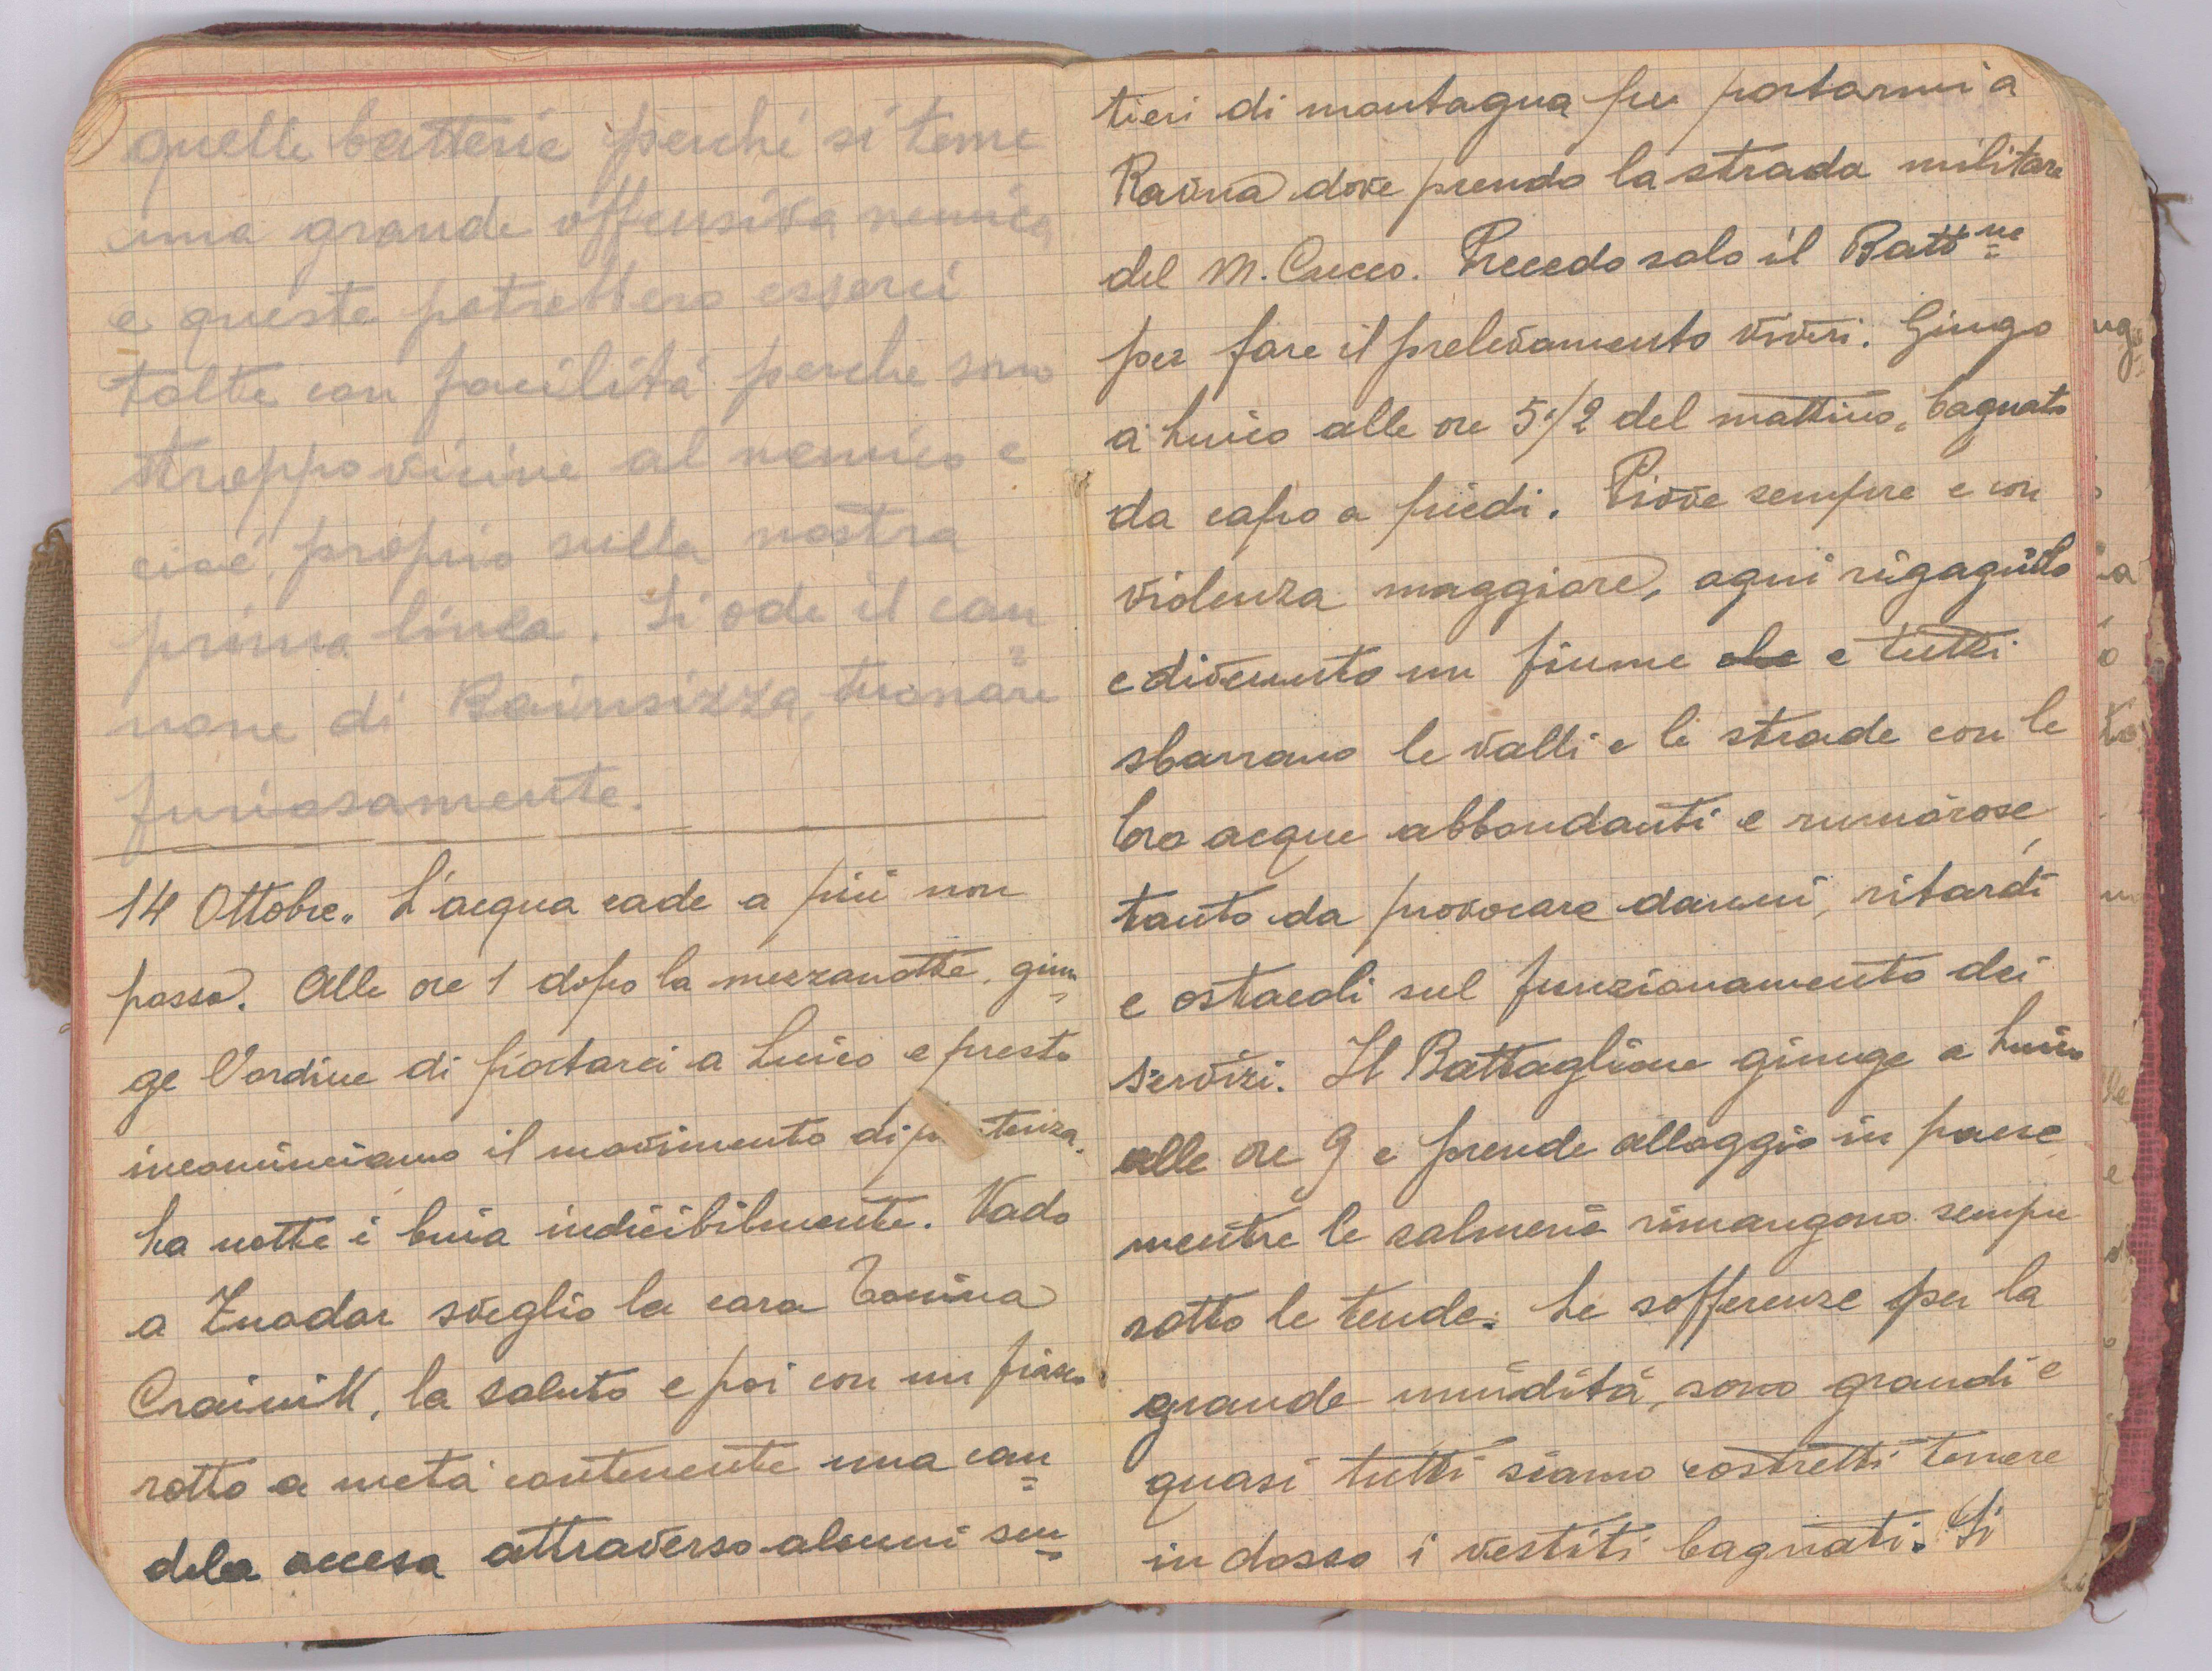 quelle batterie perchè si teme
una grande offensiva nemica
e queste potrebbero esserci
tolte con facilità perche sono
troppo vicine al nemico e
cioè, proprio sulla nostra
prima linea. Si ode il can=
none di Bainsizza, tuonare
furiosamente.
14 Ottobre.. L'acqua cade a più non
posso. Alle ore 1 dopo la mezzanotte, giun=
ge l'ordine di portarci a Luico e presto
incominciamo il movimento di tenza.
La notte è buia indicibilmente. Vado
a sveglio la cara Tonina
Crainik, la saluto e poi con un fiasco
rotto a metà contenente una can=
dela accesa attraverso alcuni sen=
tieri di montagna per portarmi a
Ravna dove prendo la strada militare
del M. Cucco. Precedo solo il Battne
per fare il prelevamento viveri. Giungo
a Luico alle ore 5 1/2 del mattino, bagnato
da capo a piedi. Piove sempre e con
violenza maggiore, ogni rigagnolo
e divenuto un fiume che e tutti
sbarrano le valli e le strade con le
loro acque abbondanti e rumorose,
tanto da provocare danni, ritardi
e ostacoli sul funzionamento dei
servizi. Il Battaglione giunge a Luico
alle ore 9 e prende alloggio in paese
mentre le salmerie rimangono sempre
sotto le tende. Le sofferenze per la
grande umidità, sono grandi e
quasi tutti siamo costretti tenere
in dosso i vestiti bagnati. Si